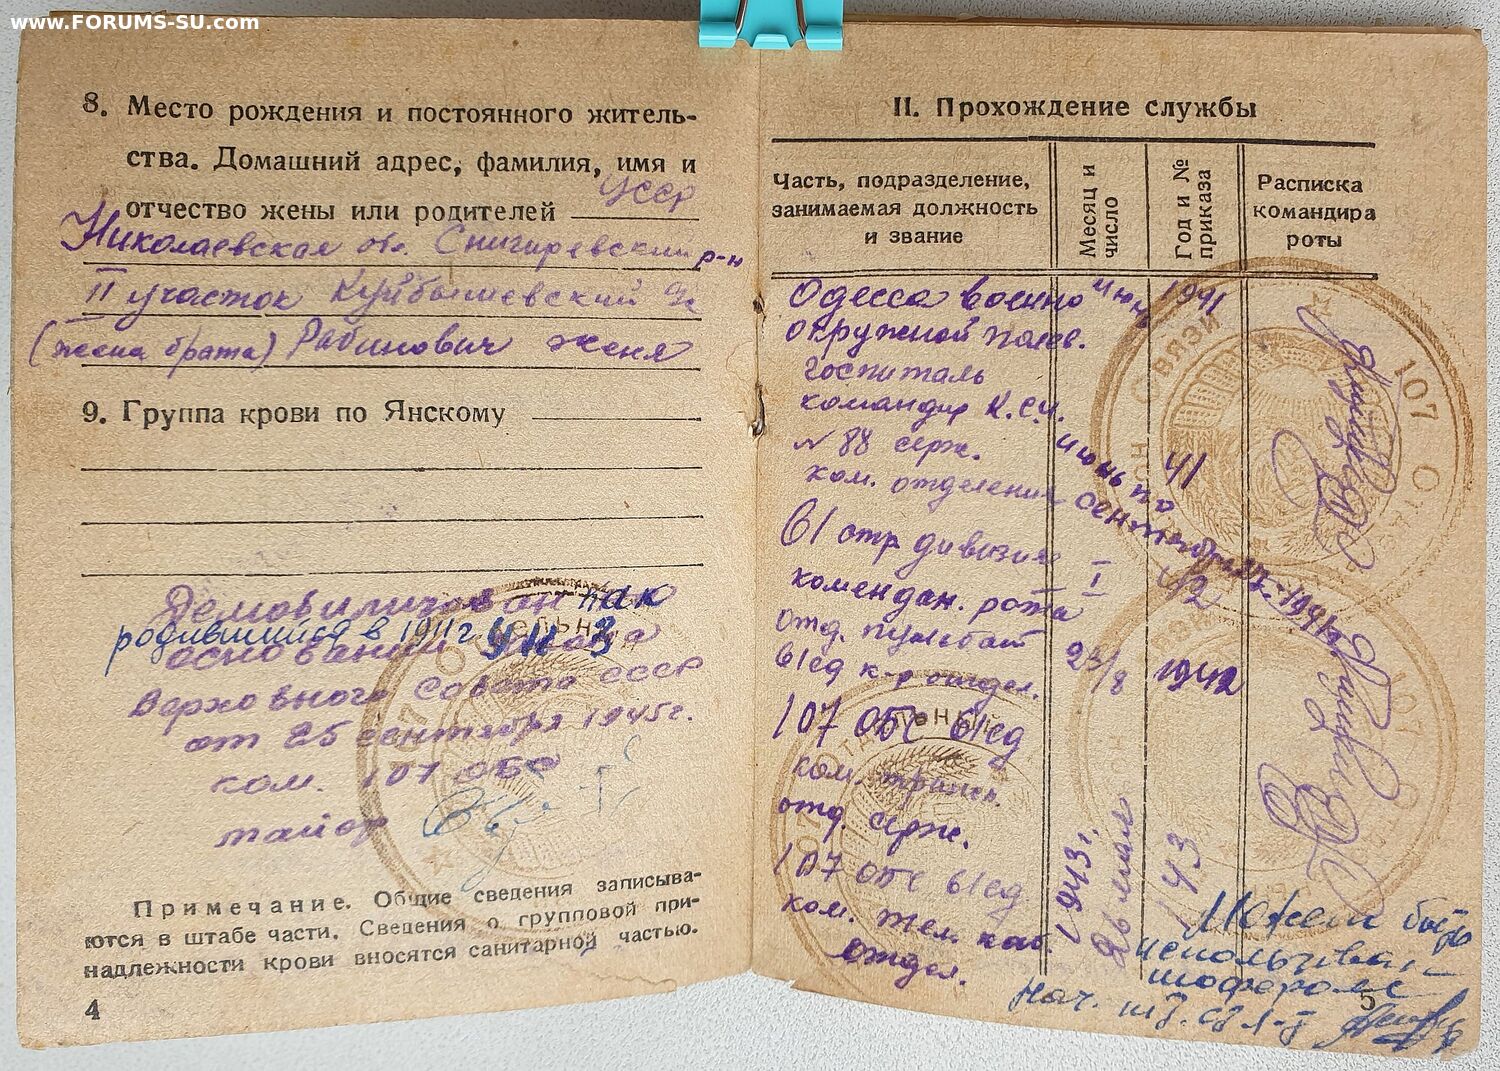 www.FORUMS-SU.com
8. Место рождения и постоянного житель-
ства. Домашний адрес, фамилия, имя и
отчество жены или родителей УССР
Николаевская обл. Снигиревский р-н
II участок Куйбышевский
(жена брата) Рабинович Женя
9. Группа крови по Янскому
Демобилизован как
родившийся в 1911 г
основании Указа
Верховного Совета СССР
от 25 сентября 1945г.
ком. 107 ОБС
майор
Примечание. Общие сведения записыва-
ются в штабе части. Сведения о групповой при-
надлежности крови вносятся санитарной частью.
4
II. Прохождение службы
Часть, подразделение,
занимаемая должность
и звание
Месяц и
число
Год и №
приказа
Расписка
командира
роты
Одесса военно июнь 1941
окружной полев.
госпиталь
командир
N 88 серж. июнь по 41
ком. отделения сентябрь-1941г
61 стр дивизия I 42
комендан. рота
отд. пульбат 23/8 1942
61сд к-р отдел.
107 ОБС 61сд
ком.
отд. серж.
107 ОБС 61сд 1943г. 43
ком. тел. каб.
отдел.
Может быть
использован
шофером
5
Нач.
107
СВЯЗИ